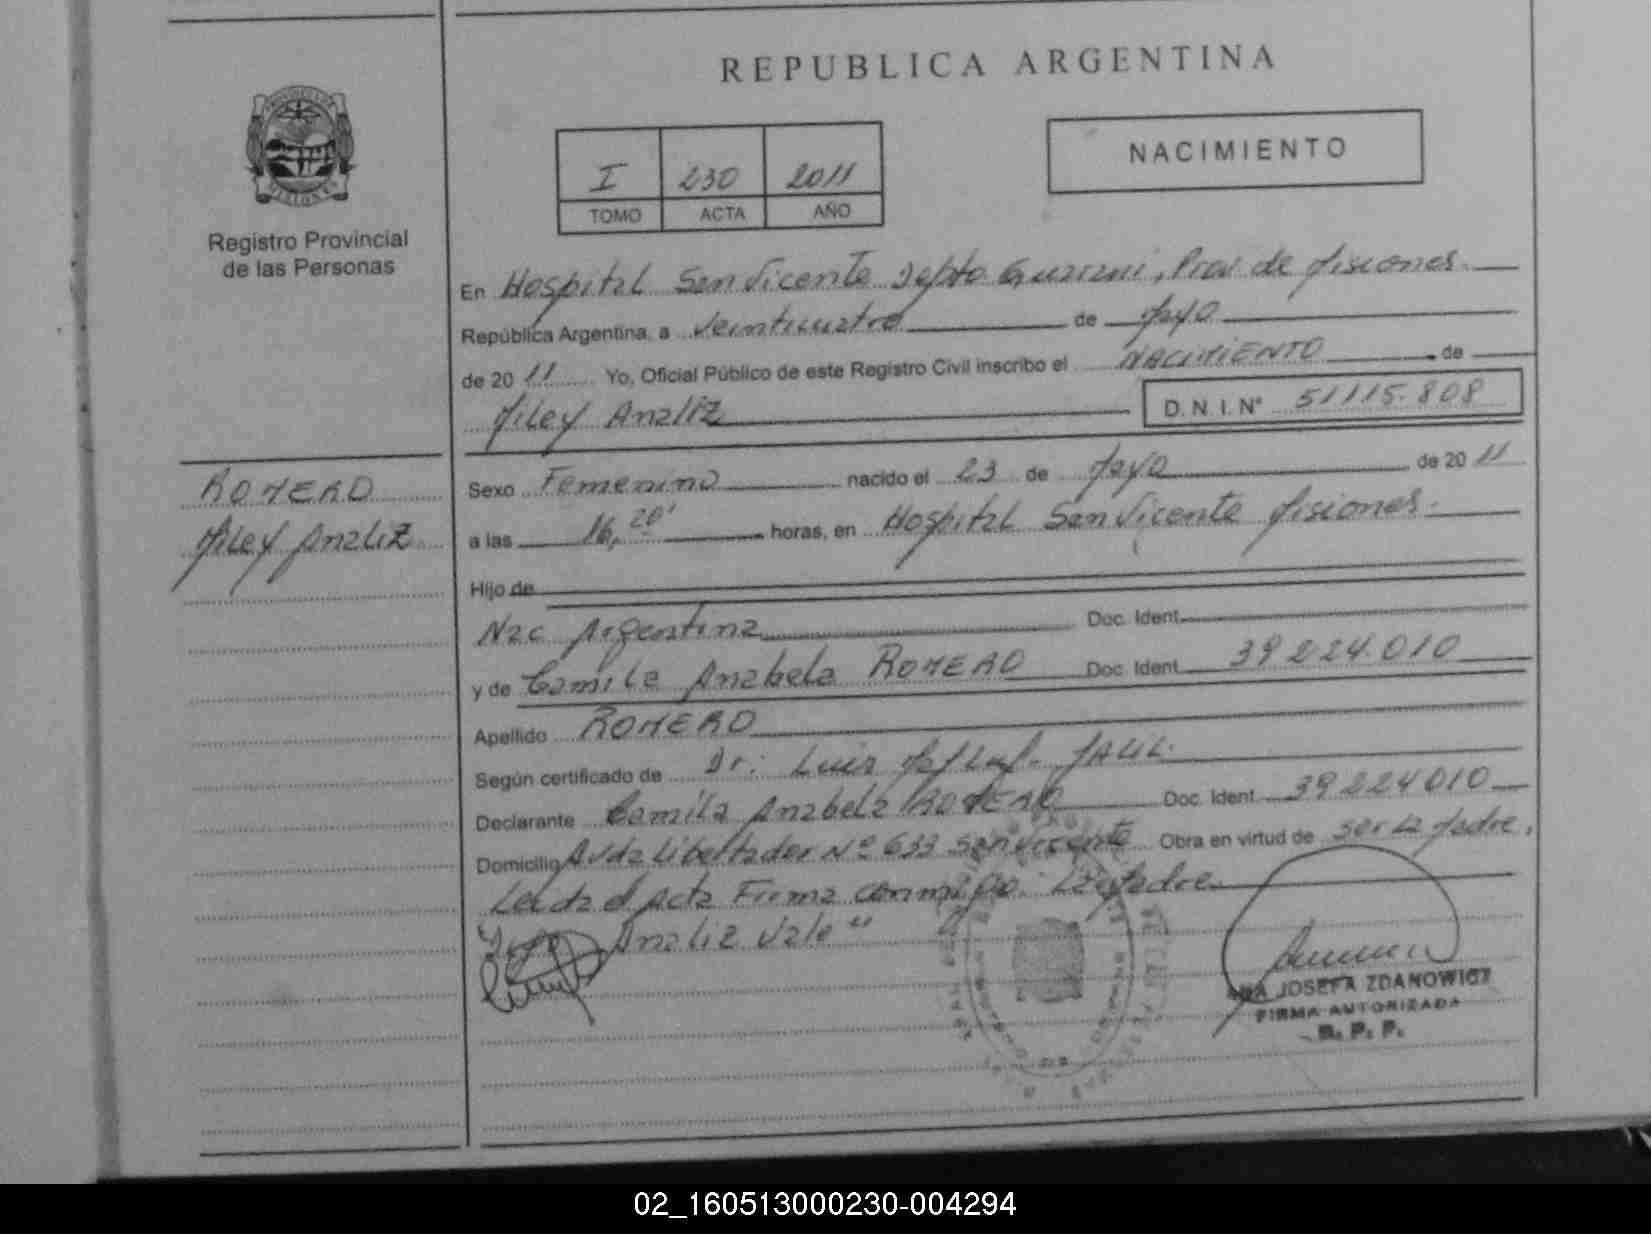 REPUBLICA ARGENTINA
NACIMIENTO
I 230 2011
TOMO ACTA AÑO
Registro Provincial
de las Personas
En Hospital San Vicente Depto Guarani, Prov. de Misiones.
República Argentina, a Veinticuatro de Mayo
de 20 11 Yo, Oficial Público de este Registro Civil inscribo el NACIMIENTO de
Miley Analiz D. N. I. N° 51115.808
ROMERO
Miley Analiz
Sexo Femenino nacido el 23 de Mayo de 20 11
a las 16,20' horas, en Hospital San Vicente Misiones.
Hijo de
Nac Argentina Doc. Ident.
y de Camila Anabela ROMERO Doc. Ident. 39224.010
Apellido ROMERO
Según certificado de Dr. Luis
Declarante Camila Anabela ROMERO Doc. Ident. 39224010
Domicilio Avda Libertador Nº 633 San Vicente Obra en virtud de ser la Madre.
Leida el Acta Firma conmigo. La Madre.
Analiz Vale"
ANA JOSEFA ZDANOWICZ
FIRMA AUTORIZADA
R. P. P.
02_160513000230-004294